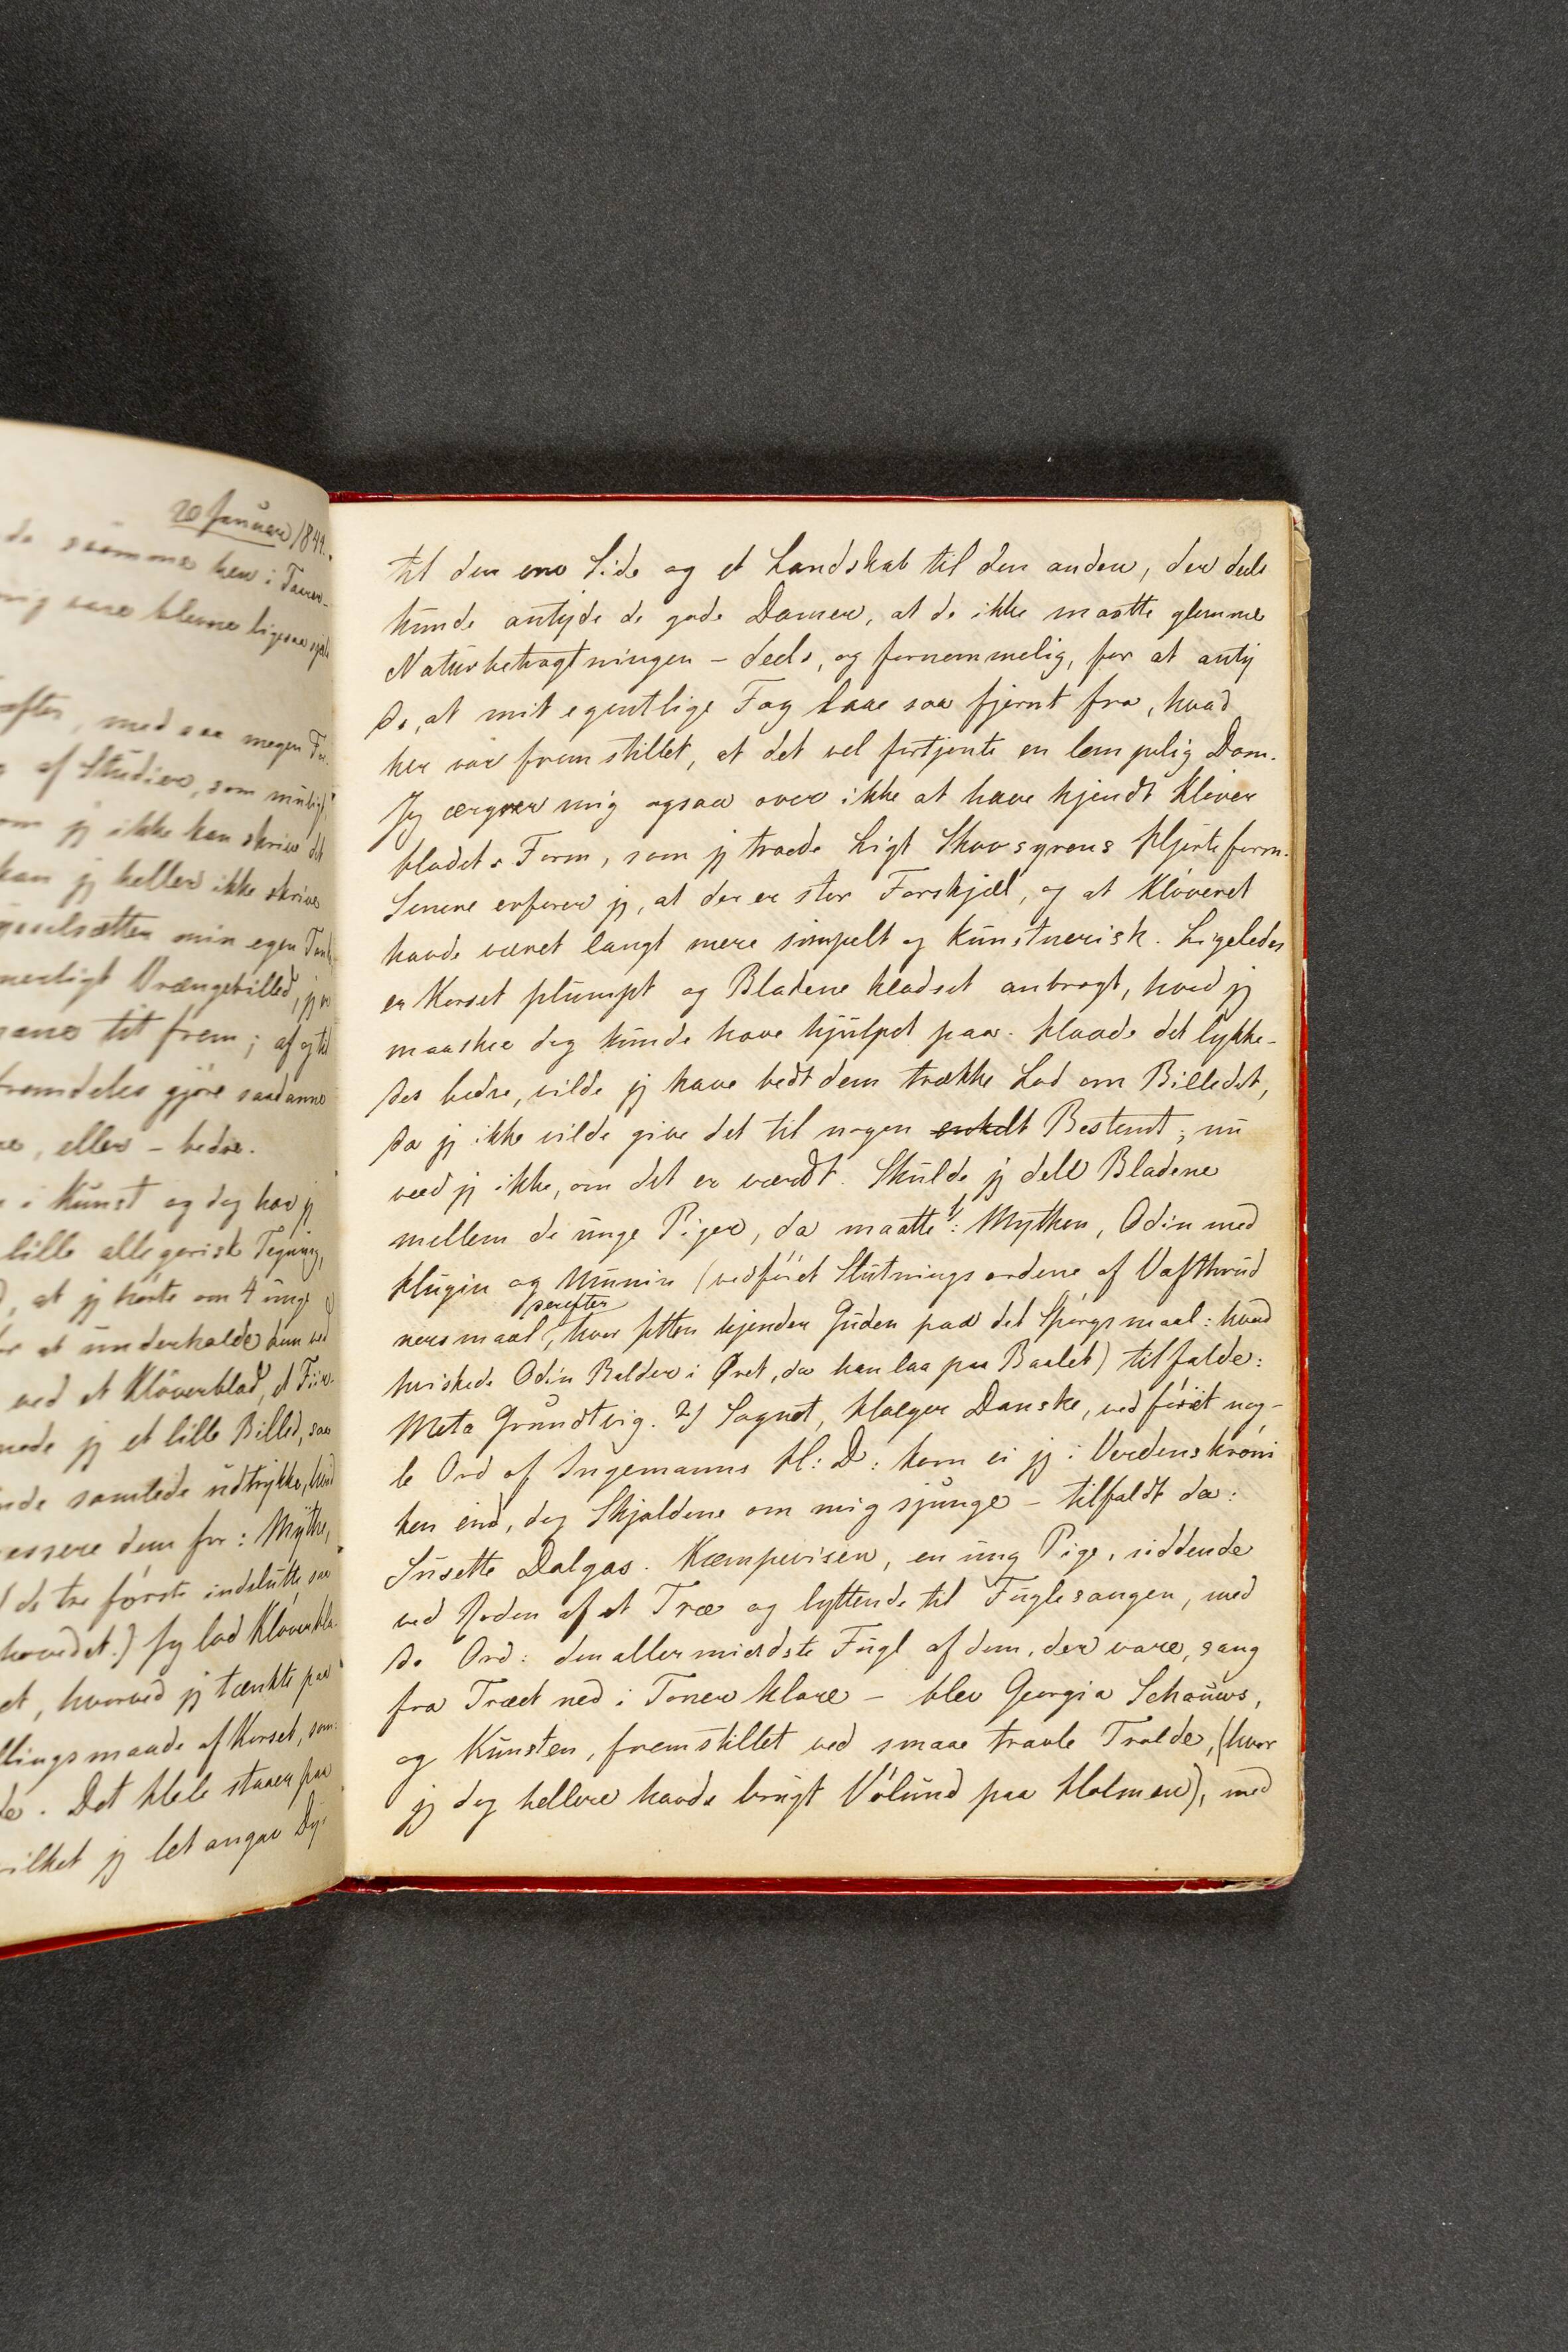 20 Januar 1844.
da svømme hen i Taarer-
mig vare blevne ligesaa
efter, med saa megen
af Studier, som muligt
om jeg ikke kan skrive det
kan jeg heller ikke skrive
min egen
Vrængebilled, jeg
tit frem; af og til
fremdeles gjøre saadanne
eller - bedre.
i Kunst og dog har jeg
lille allegorisk Tegning,
at jeg hørte om 4 unge
at underholde hun ved
ved et Kløverblad, et Fiir-
jeg et lille Billed, saa
samlede udtrykke, hvad
dem for: Mythe,
de tre første indslutte, saa
hovedet.) Jeg lod Kløverbla-
et, hvorved jeg tænkte paa
llingsmaade af Korset, som
de. Det Hele staaer paa
hvilket jeg let angav Dy-
til den ene Side og et Landskab til den anden, der deels
kunde antyde de gode Damer, at de ikke maatte glemme
Naturbetragtningen - deels, og fornemmelig, for at anty
de, at mit egentlige Fag laae saa fjernt fra, hvad
her var fremstillet, at det vel fortjente en lempelig Dom.
Jeg ærgrer mig ogsaa over ikke at have kjendt Kløver
bladets Form, som jeg troede ligt Skovsyrens Hjerteform.
Senere erfarer jeg, at der er stor Forskjæl, og at Kløveret
havde været langt mere simpelt og kunstnerisk. Ligeledes
er Korset plumpt og Bladene kladset anbragt, hvad jeg
maaskee dog kunde have hjulpet paa. Havde det lykke-
des bedre, vilde jeg have bedt dem trække Lod om Billedet,
da jeg ikke vilde give det til nogen enkelt Bestemt; nu
veed jeg ikke, om det er værdt. Skulde jeg dele Bladene
mellem de unge Piger, da maatte 1/: Mythen, Odin med
Hugin og Munin (vedføiet Slutningsordene af Vafthrud
derefter
nersmaal, hvor Jetten kjender Guden paa det Spørgsmaal: hvad
hviskede Odin Balder i Øret, da han laa paa Baalet) tilfalde:
Meta Grundtvig. 2/ Sagnet, Holger Danske, vedføiet nog-
le Ord af Ingemanns H: D: kom ei jeg i Verdenskrøni
ken ind, dog Skjaldene om mig sjunge - tilfaldt da:
Susette Dalgas. Kæmpevisen, en ung Pige, siddende
ved Foden af et Træ og lyttende til Fuglesangen, med
de Ord: den allermindste Fugl af dem, der vare, sang
fra Træet ned i Toner klare - blev Georgia Schouws,
og Kunsten, fremstillet ved smaae travle Trolde, (hvor
jeg dog hellere havde brugt Vølund paa Holmen), med